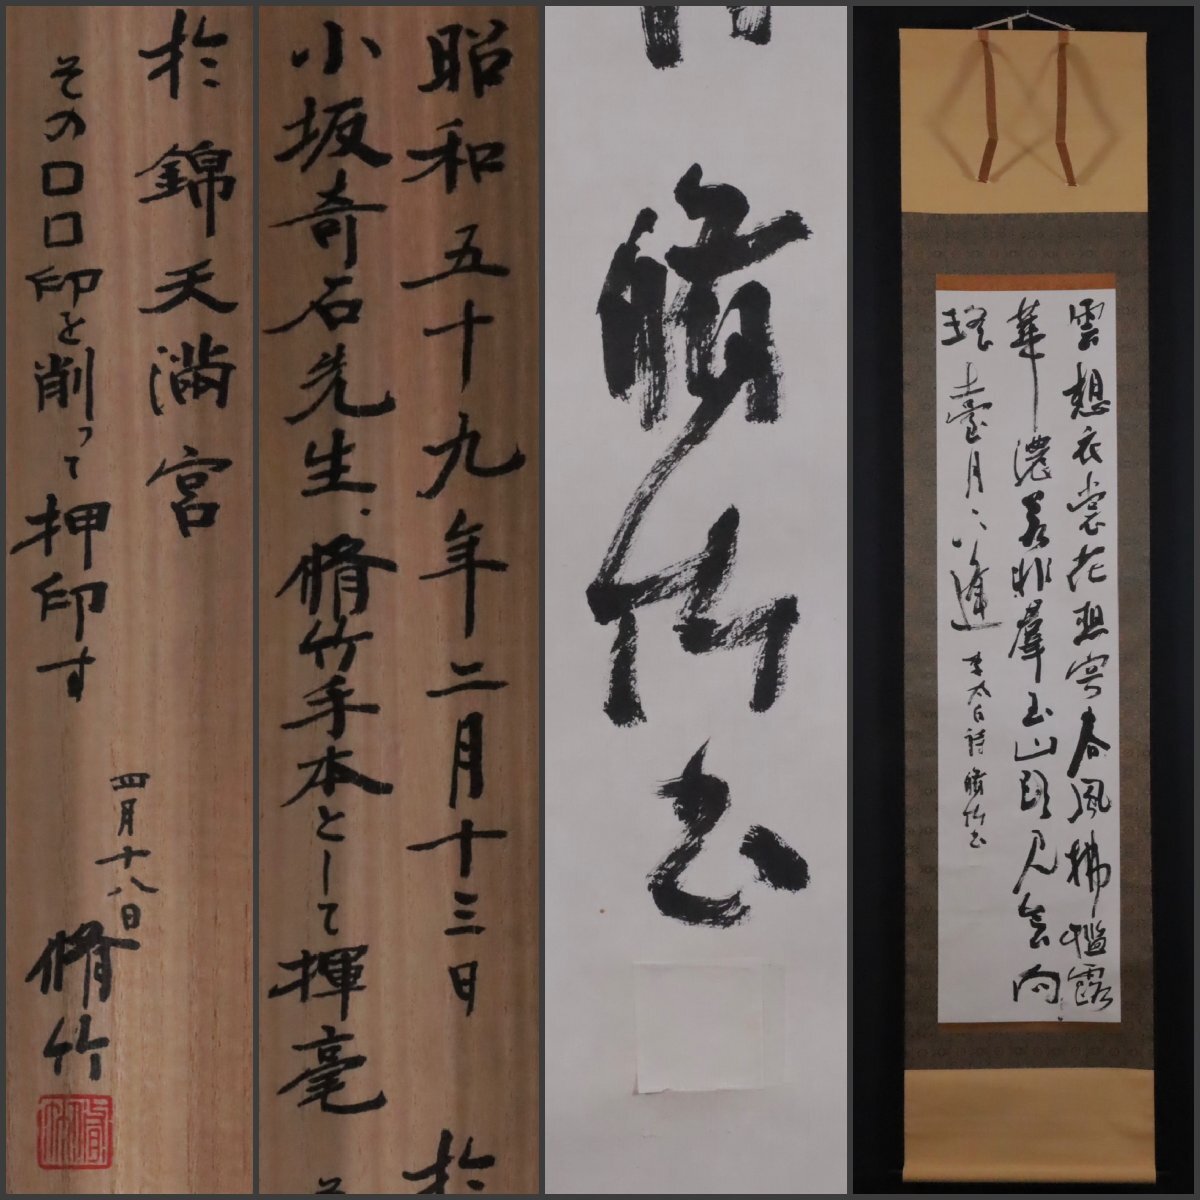 雲想衣裳花想容春風拂檻露
華濃若非羣玉山頭見會向
瑤臺月下逢
李太白詩 脩竹書
脩竹書
昭和五十九年二月十三日
小坂奇石先生、脩竹手本として揮毫
於錦天満宮
その口口印を削って押印す
四月十八日
脩竹